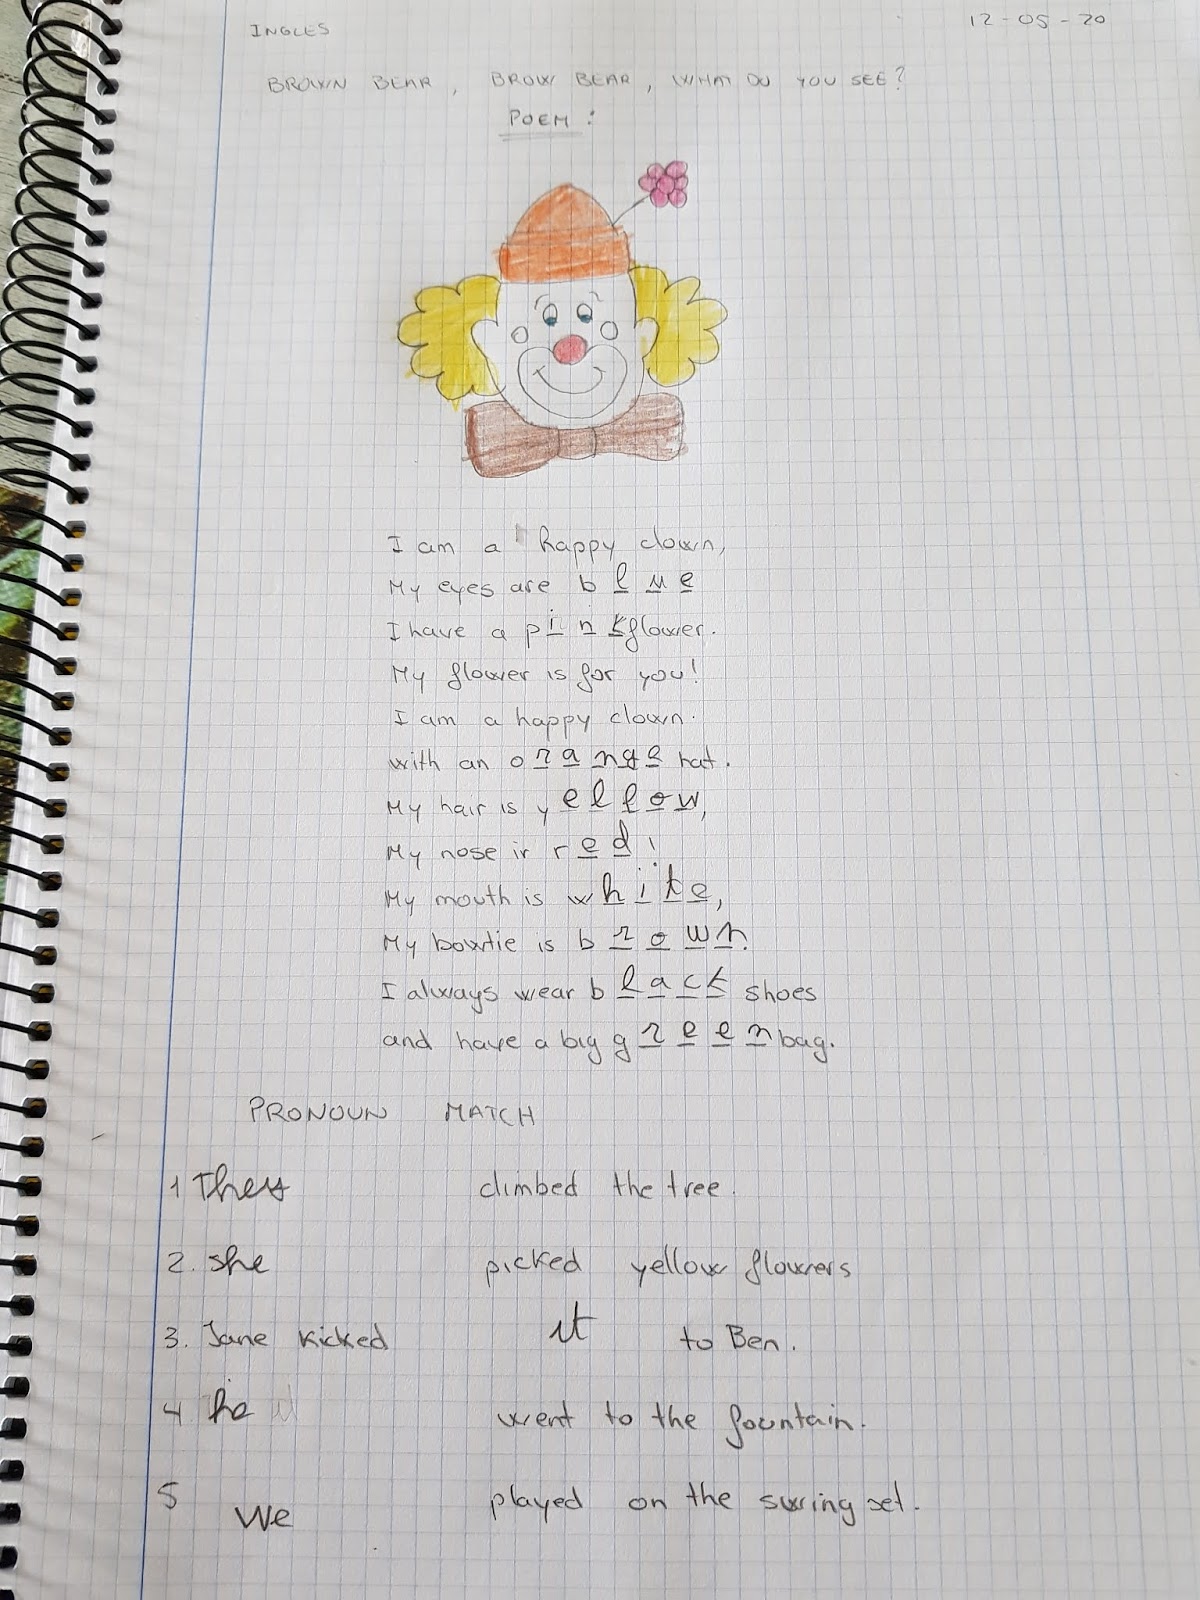 INGLES 12-05-20
BROWN BEAR, BROW BEAR, WHAT DO YOU SEE?
POEM:
I am a happy clown,
My eyes are blue
I have a pink flower.
My flower is for you!
I am a happy clown.
with an orange hat.
My hair is yellow,
My nose ir red!
My mouth is white,
My bowtie is brown.
I always wear black shoes
and have a big green bag.
PRONOUN MATCH
1 They climbed the tree.
2. she picked yellow flowers
3. Jane kicked it to Ben.
4 he went to the fountain.
5 We played on the swing set.